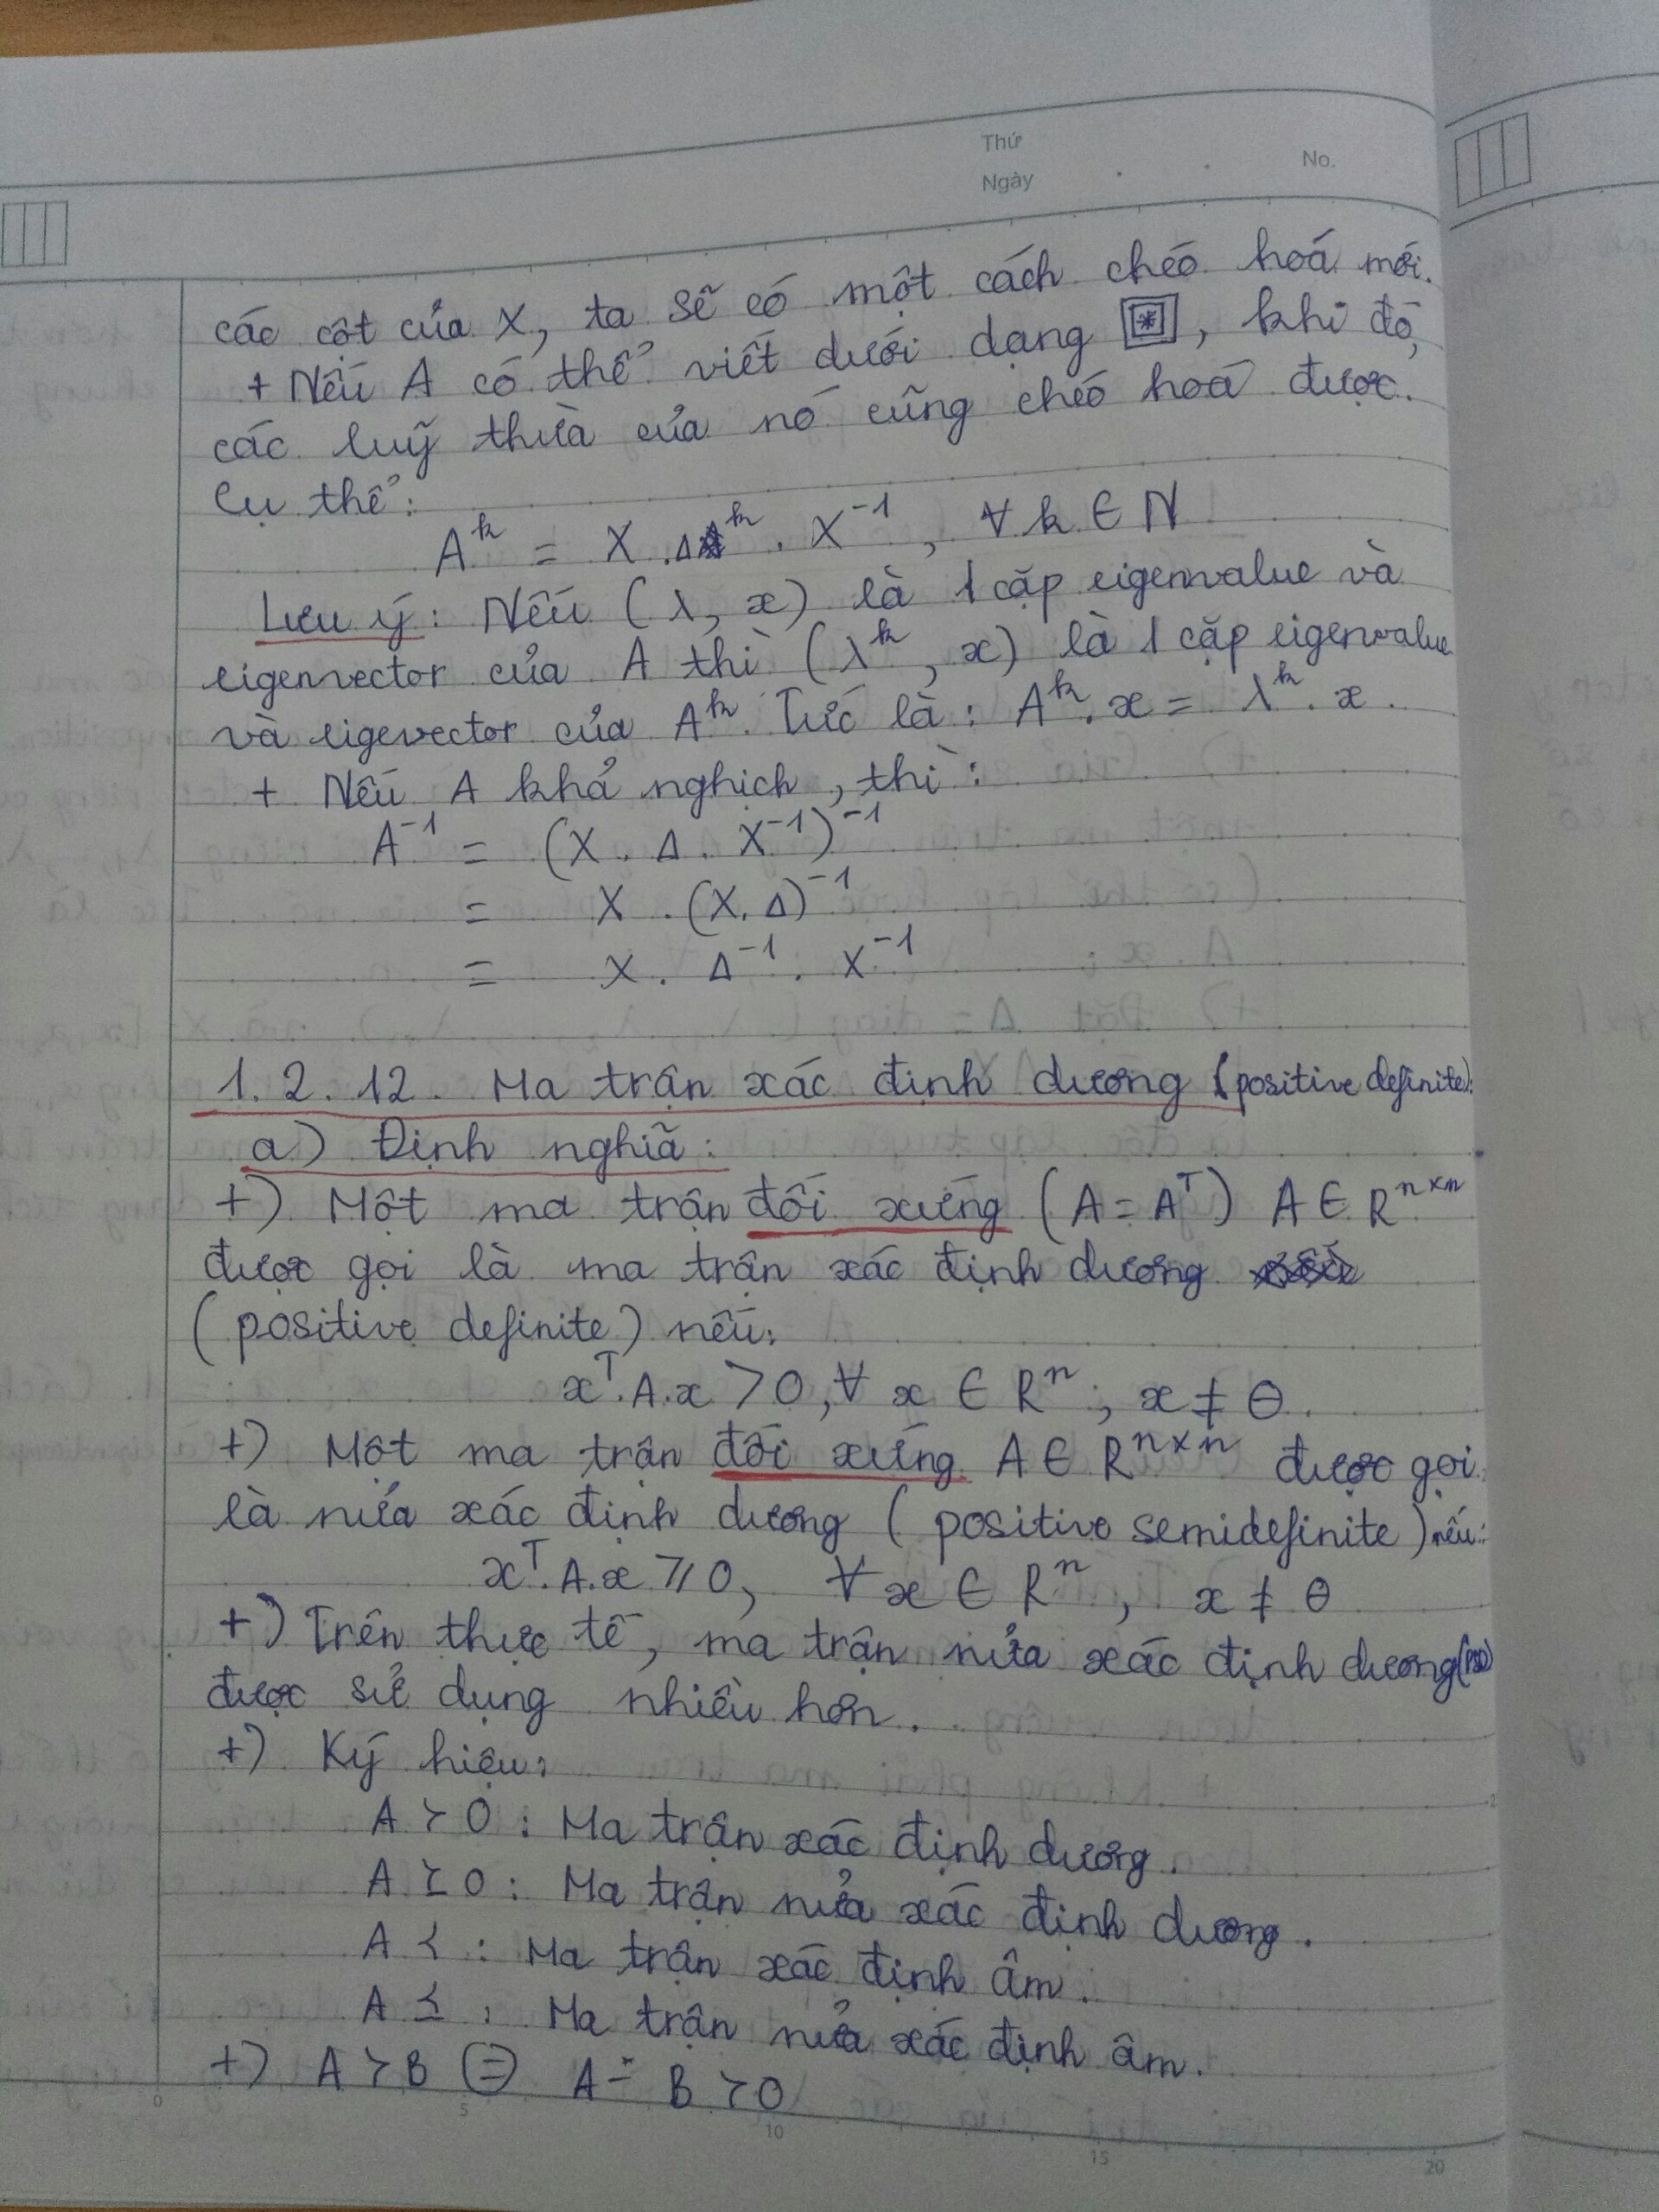 Thứ
Ngày
No.
các cột của X, ta sẽ có một cách chéo hoá mới.
+ Nếu A có thể viết dưới dạng [*], khi đó,
các luỹ thừa của nó cũng chéo hoá được.
Cụ thể:
A^k = X . Δ^k . X^-1 , ∀ k ∈ N
Lưu ý: Nếu (λ, x) là 1 cặp eigenvalue và
eigenvector của A thì (λ^k, x) là 1 cặp eigenvalue
và eigevector của A^k. Tức là: A^k. x = λ^k . x.
+ Nếu A khả nghịch, thì:
A^-1 = (X . Δ . X^-1)^-1
= X . (X. Δ)^-1
= X . Δ^-1 . X^-1
1.2.12. Ma trận xác định dương (positive definite):
a) Định nghĩa:
+) Một ma trận đối xứng (A = A^T) A ∈ R^n×n
được gọi là ma trận xác định dương
(positive definite) nếu:
x^T.A.x > 0, ∀ x ∈ R^n ; x ≠ θ.
+) Một ma trận đối xứng A ∈ R^n×n được gọi
là nửa xác định dương (positive semidefinite) nếu:
x^T.A.x ≥ 0, ∀ x ∈ R^n, x ≠ θ
+) Trên thực tế, ma trận nửa xác định dương
được sử dụng nhiều hơn.
+) Ký hiệu:
A ≻ 0 : Ma trận xác định dương.
A ⪰ 0 : Ma trận nửa xác định dương.
A ≺ : Ma trận xác định âm.
A ⪯ : Ma trận nửa xác định âm.
+) A ≻ B ⇔ A - B ≻ 0
0 5 10 15 20